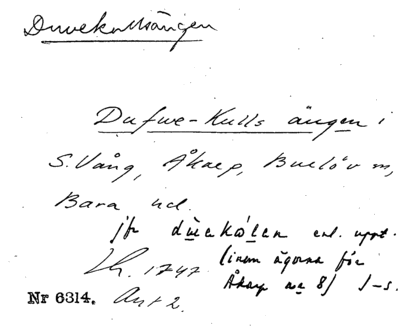 Duvekullsängen
Dufwe-Kulls ängen i
S. Vång, Åkarp, Burlöv sn,
Bara hd.
jfr dųekọ́len enl. uppt.
bland ägorna för
Lh. 1747
Åkarp nr 8) J-s.
Nr 6314. Avt 2.